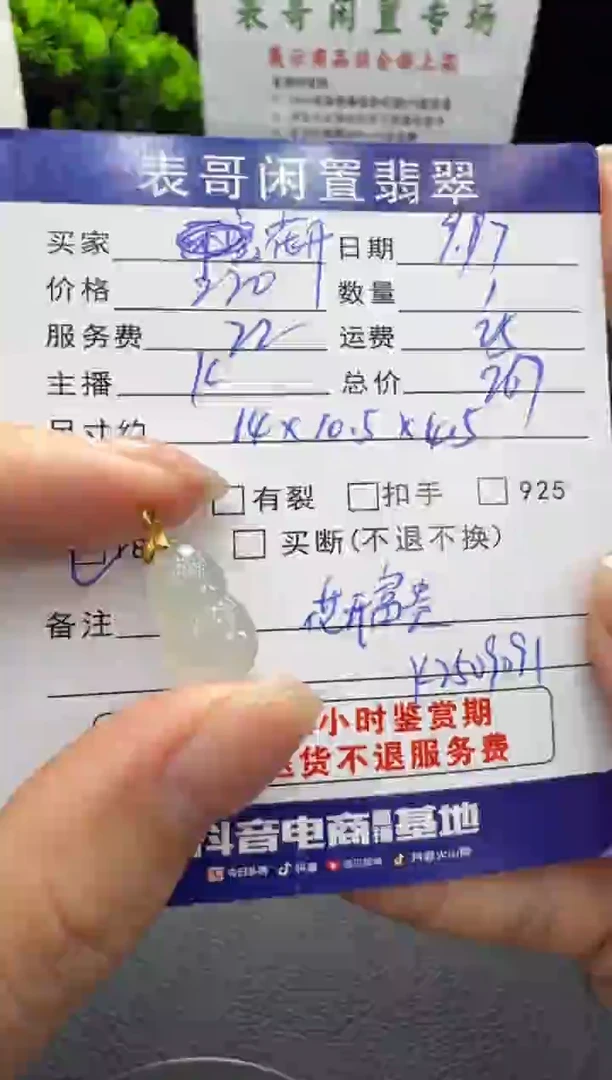 表哥闲置专场
展示商品谈合后上架
表哥闲置翡翠
买家 花开 日期 9.17
价格 220 数量 1
服务费 22 运费 25
主播 总价 267
尺寸约 14×10.5×4.5
有裂 扣手 925
买断(不退不换)
备注 花开富贵
Y2509091
小时鉴赏期
退货不退服务费
抖音电商 基地
今日头条 抖音 西瓜视频 抖音火山版